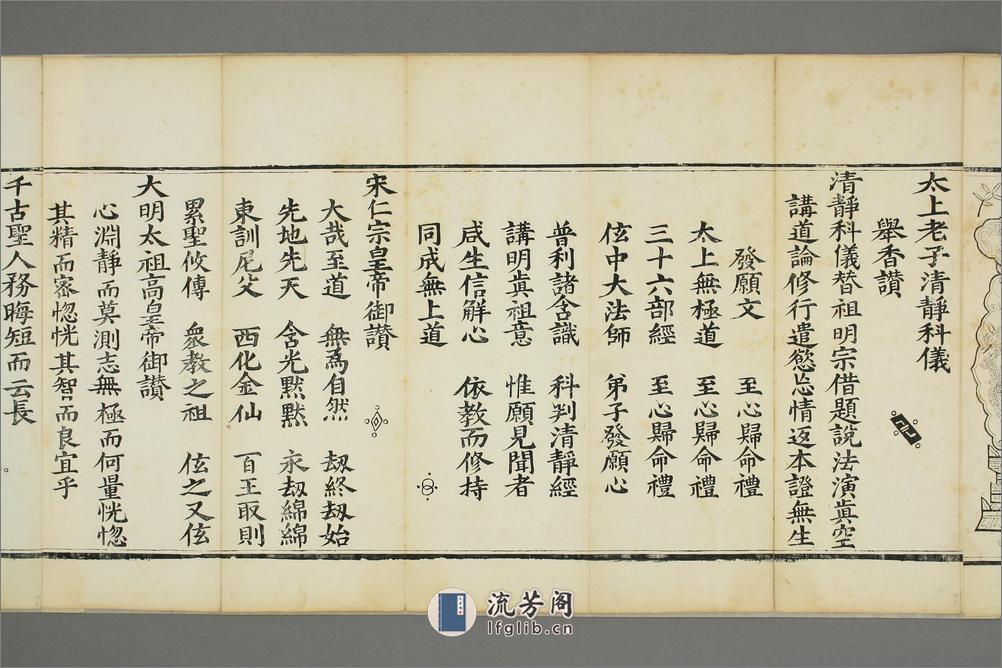 太上老子清靜科儀
舉香讃
清靜科儀替祖明宗借題說法演眞空
講道論修行遣慾忘情返本證無生
發願文　至心歸命禮
太上無極道　至心歸命禮
三十六部經　至心歸命禮
伭中大法師　弟子發願心
普利諸含識　科判清靜經
講明眞祖意　惟願見聞者
咸生信解心　依教而修持
同成無上道
宋仁宗皇帝御讃
大哉至道　無爲自然　刼終刼始
先地先天　含光黙黙　永刼綿綿
東訓尼父　西化金仙　百王取則
累聖攸傳　衆教之祖　伭之又伭
大明太祖高皇帝御讃
心淵靜而莫測志無極而何量恍惚
其精而密惚恍其智而良宜乎
千古聖人務晦短而云長
流芳阁
lfglib.cn